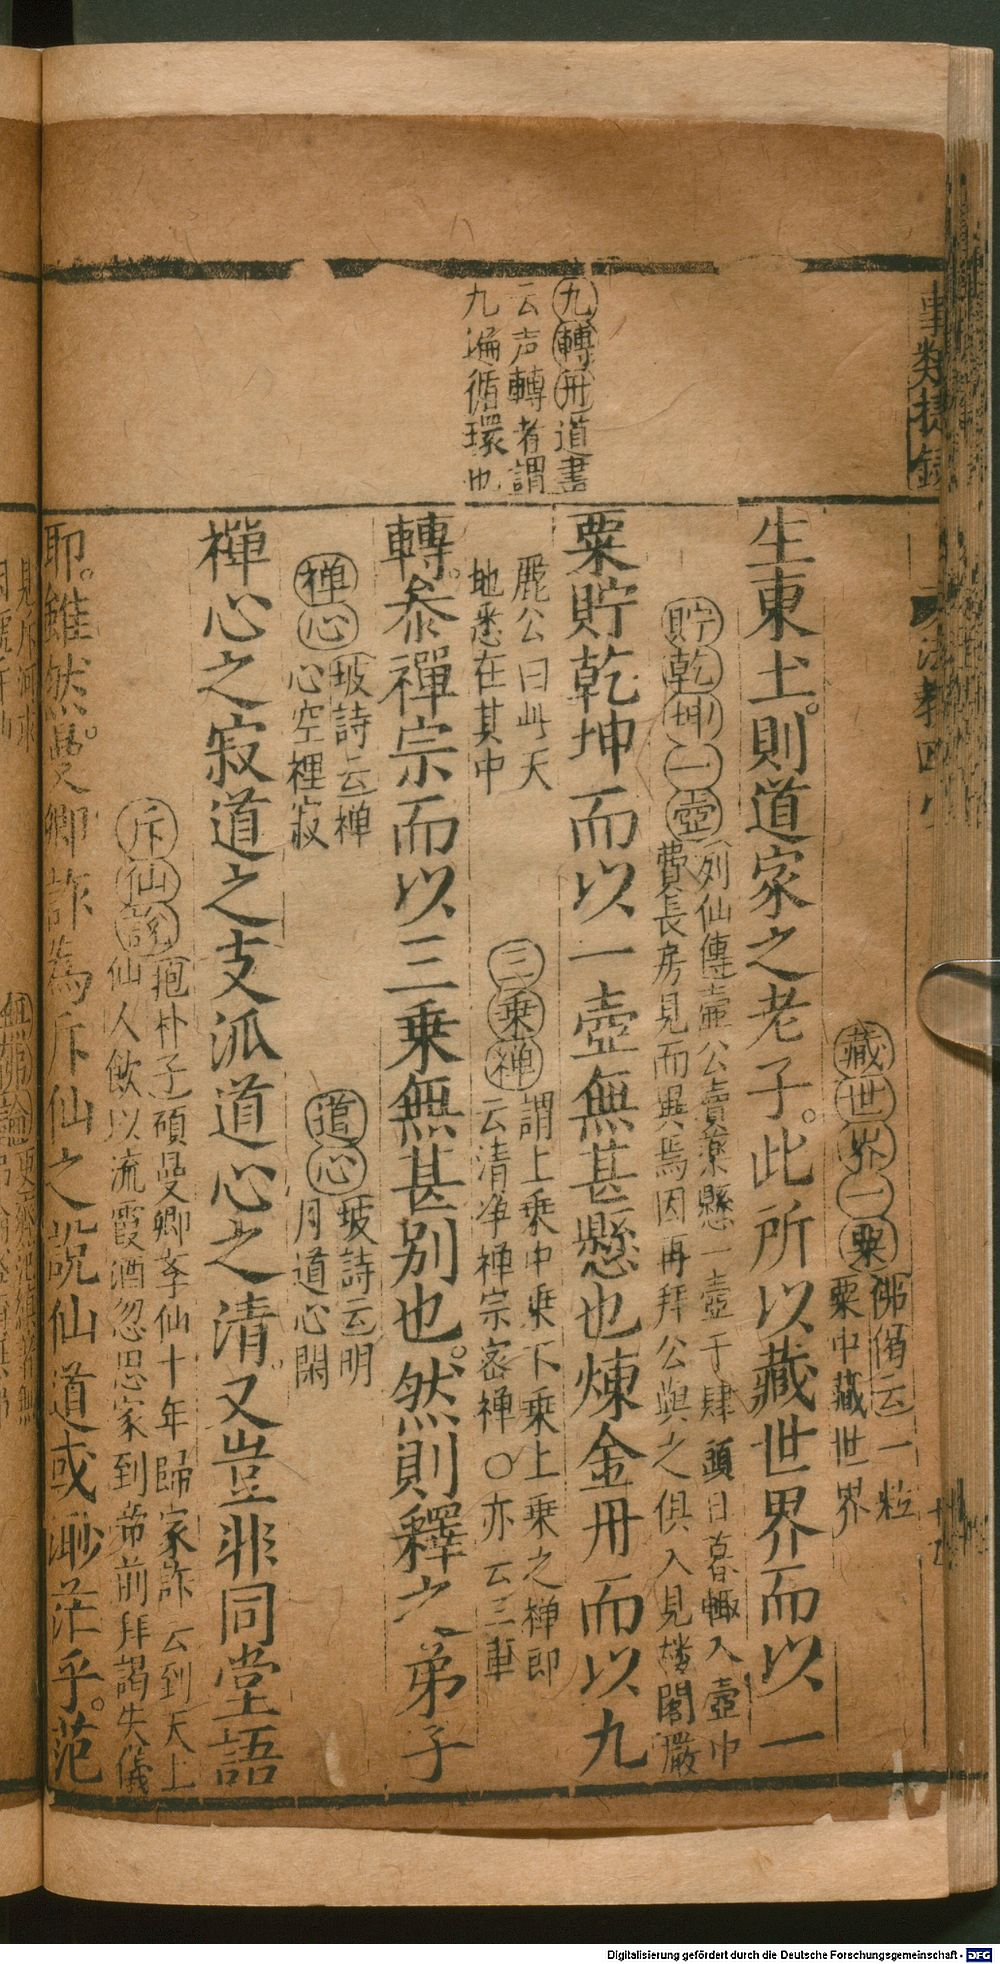 事類捷錄
九轉丹道書
云声轉者謂
九遍循環也
生東土。則道家之老子。此所以藏世界而以一
藏世界一粟佛偈云一粒
粟中藏世界
貯乾坤一壺列仙傳壺公賣藥懸一壺于肆頭日暮輙入壺中
費長房見而異焉因再拜公與之俱入見楼閣嚴
粟貯乾坤而以一壺無甚懸也煉金丹而以九
麗公曰此天
地悉在其中
三乗禅謂上乗中乗下乗上乗之禅即
云清净禅宗宻禅〇亦云三車
轉。叅禪宗而以三乗無甚别也。然則釋之弟子
禅心坡詩云禅
心空裡寂
道心坡詩云明
月道心閑
禪心之寂道之支派道心之清。又豈非同堂語
斥仙説抱朴子碩曼卿斈仙十年歸家詐云到天上
仙人飲以流霞酒忽思家到帝前拜謁失儀
耶。雖然。曼卿詐為斥仙之説仙道或渺茫乎。范
Digitalisierung gefördert durch die Deutsche Forschungsgemeinschaft - DFG